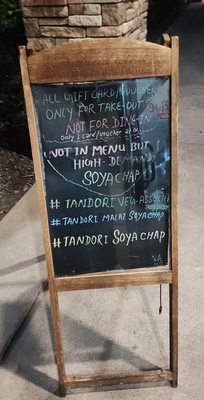 ALL GIFT CARD/VOUCHER
ONLY FOR TAKE-OUT
NOT FOR DINE-IN
ONLY 1 CARD/VOUCHER
(NOT IN MENU BUT
HIGH-DEMAND
SOYA CHAP
# TANDORI VEG-ASSORTED
# TANDORI MALAI SOYACHAP
# TANDORI SOYA CHAP